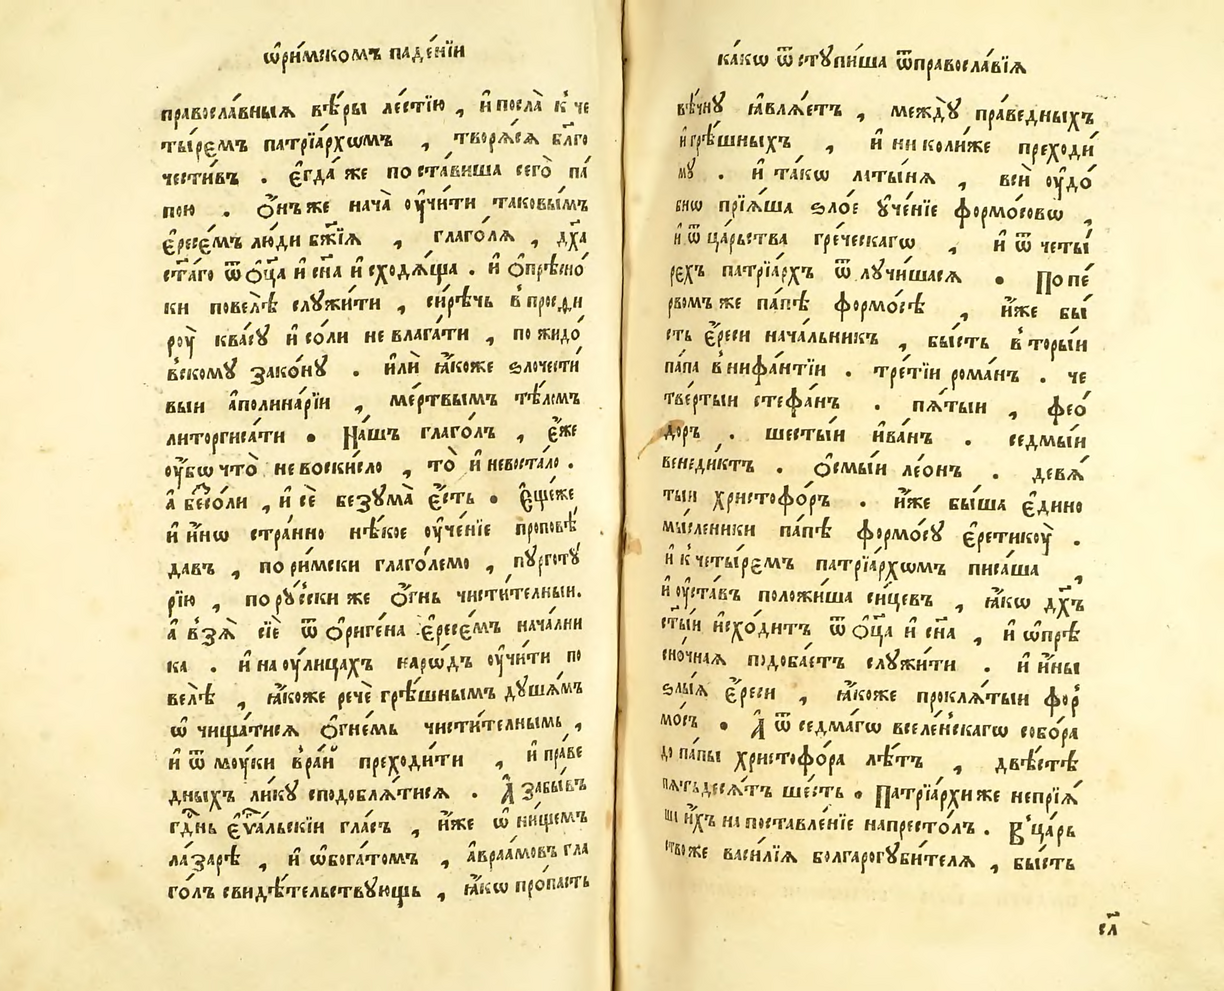 ѡ҆ри́мскомъ паде́нїи
правосла́вныѧ вѣ́ры ле́стїю , и҆ посла̀ к҆ че
ты́ремъ патрїа́рхѡмъ , творѧ́сѧ бл҃го
че́стивъ . є҆гда́ же поста́виша сего̀ па́
пою . ѻ҆́нъже нача̀ ѹ҆чи́ти таковы́мъ
є҆ресе́мъ лю́ди бж҃їѧ , глаго́лѧ , дх҃а
ст҃а́го ѿ ѻ҆ц҃а и҆ сн҃а и҆схода́ща . и҆ ѻ҆прѣсно́
ки повелѣ̀ слꙋжи́ти , си́рѣчь в҆ просфи
роу̀ ква́сꙋ и҆ со́ли не влага́ти , по жидо́
вскомꙋ зако́нꙋ . и҆лѝ ꙗ҆́коже ѕлочести́
выи а҆полина́рїи , ме́ртвымъ тѣ́ломъ
литоргиса́ти . На́шъ глаго́лъ , є҆́же
ѹ҆́бѡ что̀ не воски́сло , то̀ и҆ невоста́ло .
а҆ бесо́ли , и҆ сѐ безꙋма̀ є҆́сть . Е҆ще́же
и҆ и҆́нѡ стра́нно нѣ́кое ѹ҆че́нїе проповѣ́
давъ , по ри́мски глаго́лемо , пꙋрготꙋ́
рїю , порꙋ́сски же ѻ҆́гнь чисти́телныи .
а҆ в҆зѧ̀ сїѐ ѿ ѻ҆риге́на є҆ресе́мъ нача́лни
ка . и҆ на ѹ҆́лицахъ наро́дъ ѹ҆чи́ти по
велѣ̀ , ꙗ҆́коже речѐ грѣ́шнымъ дꙋша́мъ
ѡ҆чища́тисѧ ѻ҆гне́мъ чисти́телнымъ ,
и҆ ѿ мꙋ́ки в҆ра́й преходи́ти , и҆ пра́ве
дныхъ ли́кꙋ сподоблѧ́тисѧ . А҆ забы́въ
гд҃нь є҆ѵ҃а́льскїи гла́съ , и҆́же ѡ҆ ни́щемъ
ла́зарѣ , и҆ ѡ҆бога́томъ , а҆враа́мовъ гла
го́лъ свидѣ́тельствꙋющь , ꙗ҆́кѡ про́пасть
ка́кѡ ѿстꙋпи́ша ѿправосла́вїѧ
вѣ́чнꙋ ꙗ҆влѧ́етъ , междꙋ̀ пра́ведныхъ
и҆ грѣ́шныхъ , и҆ ни коли́же преходи́
мꙋ . и҆ та́кѡ латы́нѧ , всѝ ѹ҆до́
бнѡ прїѧ́ша ѕло́е ꙋ҆че́нїе формо́совѡ ,
и҆ ѿ ца́рьства гре́ческагѡ , и҆ ѿ четы́
рехъ патрїа́рхъ ѿлꙋчи́шасѧ . По пе́
рвомъ же па́пѣ формо́сѣ , и҆́же бы́
сть є҆́реси нача́льникъ , бы́сть в҆торы́и
па́па в҆нифа́нтїи . тре́тїи рома́нъ . че
тве́ртыи стефа́нъ . пѧ́тыи , фео́
доръ . шесты́и и҆ва́нъ . седмы́и
венеди́ктъ . ѻ҆смы́и ле́онъ . девѧ́
тыи христофо́ръ . и҆́же бы́ша є҆ди́но
мы́сленики па́пѣ формо́сꙋ є҆ретикоу̀ .
и҆ к҆ четы́рем патрїа́рхѡмъ писа́ша ,
и҆ ѹ҆ста́въ положи́ша си́цевъ , ꙗ҆́кѡ дх҃ъ
ст҃ы́и и҆схо́дитъ ѿ ѻ҆ц҃а и҆ сн҃а , и҆ ѡ҆прѣ
сно́чнаѧ подоба́етъ слꙋжи́ти . и҆ и҆́ны
ѕлы́ѧ є҆́реси , ꙗ҆́коже проклѧ́тыи фор
мо́съ . А҆ ѿ седма́гѡ вселе́нскагѡ собо́ра
до па́пы христофо́ра лѣ́тъ , двѣ́стѣ
пѧтьдесѧ́тъ ше́сть . Патрїа́рхи же непрїѧ́
ша и҆́хъ на поставле́нїе напресто́лъ . В҆ ца́рь
ство же васи́лїѧ болгарогꙋби́телѧ , бы́сть
сл҃